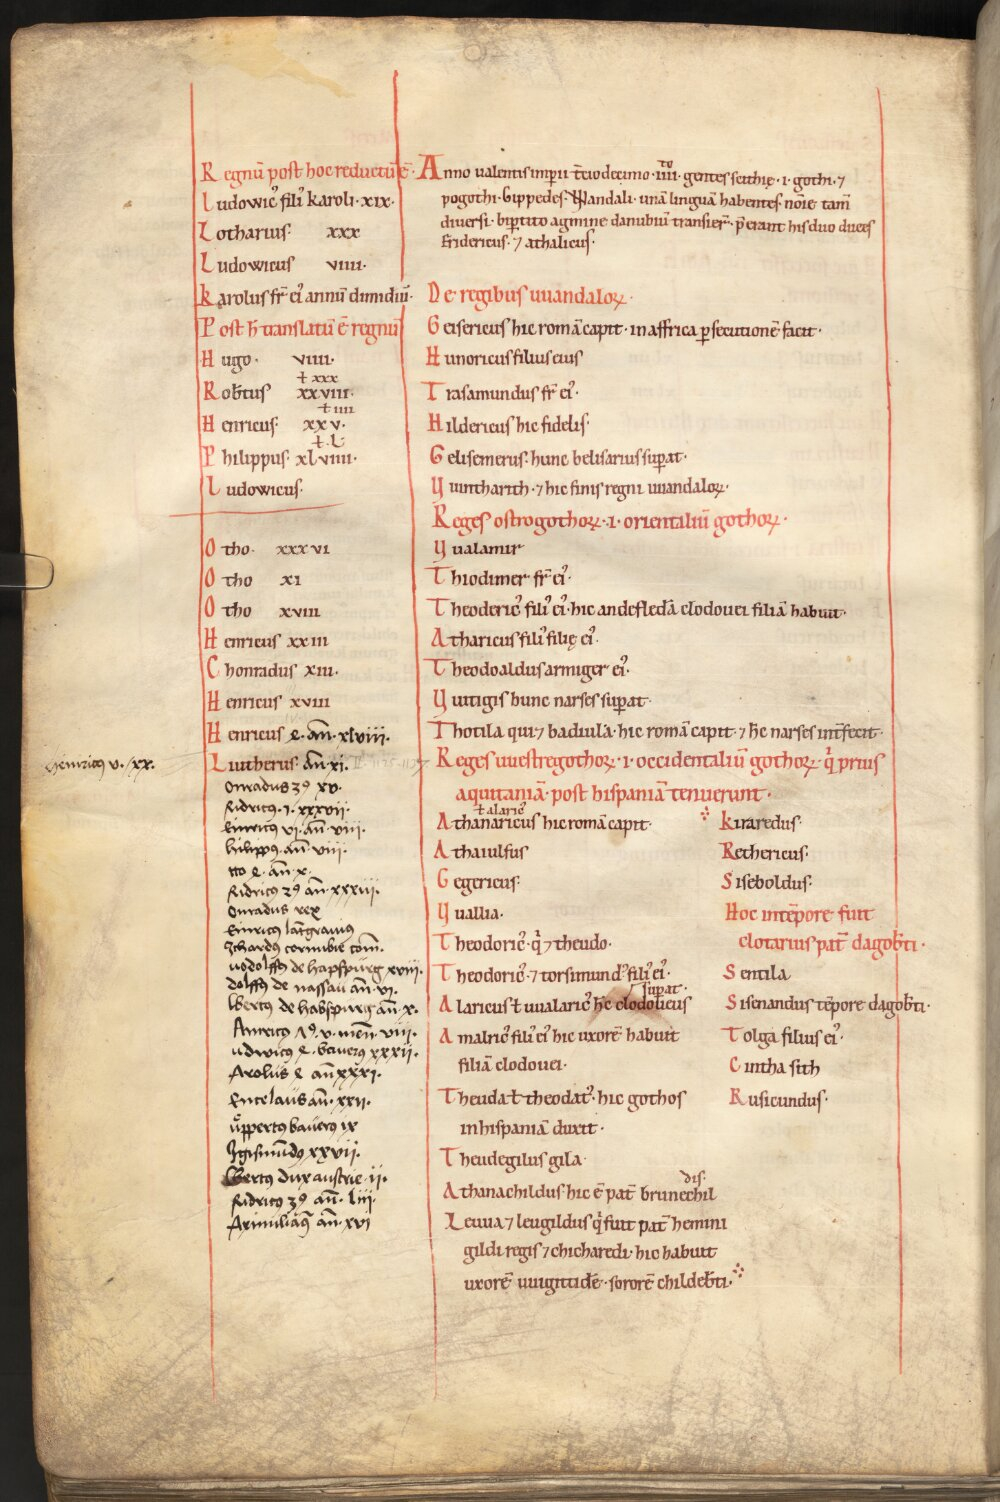 Regnū post hoc reductū ē·
Ludowicꝰ filiꝰ karoli· xıx·
Lotharius· xxx
Ludowicus vıııı·
karolus fr̄ eiꝰ annū dimidiū·
Post h̄ translatū ē regnū
Hugo· vıııı·
ł xxx
Rob̄tus xxvııı·
ł ıııı
Henricus· xxv·
ł· l·
Philippus· xlvıııı·
Ludowicus·
Otho· xxxvı
Otho xı
Otho xvııı
Henricus xxııı
Chonradus xııı·
Henricus xvııı
Henricus 2· an̄· xlviii·
heinricꝰ v· xx·
Lutherus· an̄· xi·
Onradus 3ꝰ xv·
fridricꝰ· 1· xxxvii·
Einricꝰ vi· an̄· viii·
hilippꝰ· an̄· viii·
tto 4· an̄· x·
fridricꝰ 2ꝰ an̄· xxxiii·
Onradus rex
Einricꝰ lātgraviꝰ
Ichardꝰ cornubie com̄·
uodolffꝰ de hapspurg xviii·
dolffꝰ de nassau an̄· vi·
lbertꝰ de habspurg an̄· x·
Ainricꝰ 7ꝰ· v· mēn· viii·
udwicꝰ 4· bavarꝰ xxxii·
Arolus 4 an̄ xxxi·
Encelaus an̄· xxii·
uppertꝰ bavarꝰ ix
Igismūdꝰ xxvii·
lbertꝰ dux austrie· ii·
fridricꝰ 3ꝰ an̄· liii·
Aximiliāꝰ an̄· xvi
Anno valentis imperii t̄ciodecimo· ıııı·to gentes scithię· ı· gothi· ⁊
ypogothi· Gippedes· Wandali· unā linguā habentes· noīe tam̄
diversi· bip̄tito agmine danubiū transier̄· p̄erant his duo duces
fridericus· ⁊ athalicus·
De regibus wandaloꝝ·
Geisericus hic romā capit· in affrica p̱secutionē facit·
Hunoricus filius eius
Trasamundus fr̄ eiꝰ·
Hildericus hic fidelis·
Gelisemerus· hunc belisarius sup̱at·
Vuintharith· ⁊ hic finis regni wandaloꝝ·
Reges ostrogothoꝝ· ı· orientaliū gothoꝝ·
Vualamir
Thiodimer fr̄ eiꝰ·
Theodericꝰ filiꝰ eiꝰ· hic andefledā clodovei filiā habuit·
Atharicus filiꝰ filię eiꝰ·
Theodoaldus armiger eiꝰ·
Vuitigis hunc narses sup̱at·
Thotila qui· ⁊ badiula· hic romā capit· ⁊ h̄c narses int̄fecit·
Reges westregothoꝝ· ı· occidentaliū gothoꝝ· q̇ prius
aquitaniā· post hispaniā tenuerunt·
ł alaricꝰ
Athanaricus hic romā capit·
Athaiulfus
Gegericus·
Vuallia·
Theodoricꝰ· q̇ ⁊ theudo·
Theodoricꝰ· ⁊ torsimundꝰ filiꝰ eiꝰ·
sup̱at·
Alaricus ł wualaricꝰ h̄c clodovicus
Amalricꝰ filiꝰ eiꝰ hic uxorē habuit
filiā clodovei·
Theuda ł theodatꝰ· hic gothos
in hispaniā duxit·
Theudegilus gila·
dis·
Athanachildus hic ē pat̄ brunechil
Leuua ⁊ leugildus q̇ fuit pat̄ hemini
gildi regis ⁊ chicharedi· hic habuit
uxorē wigittidē· sororē childeb̄ti·
kiraredus·
Rethericus·
Siseboldus·
Hoc intēpore fuit
clotarius pat̄ dagob̄ti·
Sentila
Sisenandus tēpore dagob̄ti·
Tolga filius eiꝰ·
Cintha sith
Rusicundus·